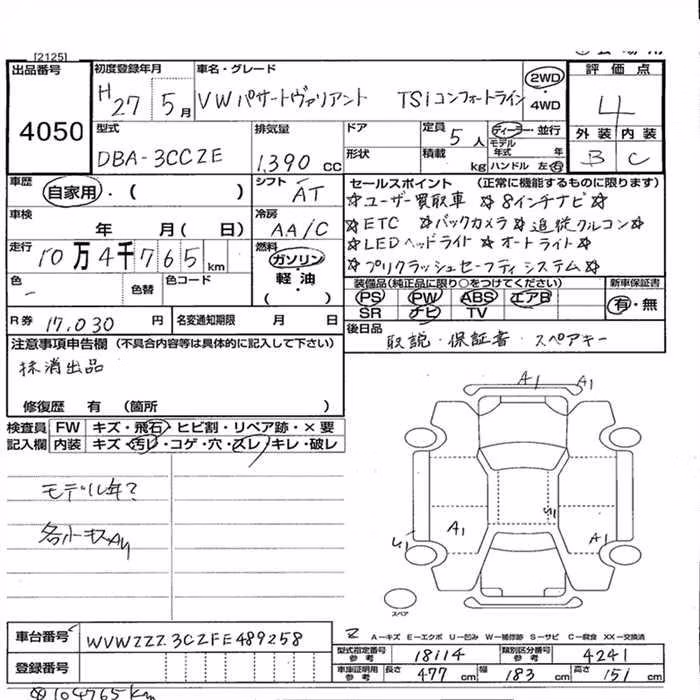 [2125]
出品番号
4050
初度登録年月
H 27 5月
車名・グレード
VW パサートヴァリアント TSiコンフォートライン
2WD・4WD
評価点
4
外装 内装
B C
型式
DBA-3CCZE
排気量
1,390 cc
ドア
形状
定員 5人
積載 kg
ディーラー・並行
モデル年式 年
ハンドル 左・右
車歴
自家用・( )
シフト
AT
車検 年 月( 日)
冷房
AA/C
走行 10万4千765km
燃料
ガソリン・軽油
( )
色 -
色替
色コード
R券 17,030 円
名変通知期限 月 日
セールスポイント (正常に機能するものに限ります)
☆ユーザー買取車 ☆8インチナビ☆
☆ETC ☆バックカメラ☆追従クルコン☆
☆LEDヘッドライト☆オートライト☆
☆プリクラッシュセーフティシステム☆
装備品(純正品に限り○をつけてください)
PS PW ABS エアB
SR ナビ TV
新車保証書
有・無
後日品
取説・保証書・スペアキー
注意事項申告欄(不具合内容等は具体的に記入して下さい)
抹消出品
修復歴 有 (箇所 )
検査員記入欄
FW キズ・飛石・ヒビ割・リペア跡・×要
内装 キズ・汚レ・コゲ・穴・スレ・キレ・破レ
モデル年?
A1 A1
A1 A1
スペア
A-キズ E-エクボ U-凹み W-補修跡 S-サビ C-腐食 XX-交換済
車台番号
WVWZZZ3CZFE489258
登録番号
型式指定番号参考 18114
類別区分番号参考 4241
車庫証明用参考 長さ 477cm 幅 183cm 高さ 151cm
104765km